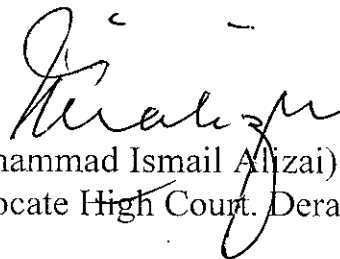 hammad Ismail Alizai)
ocate High Court. Dera